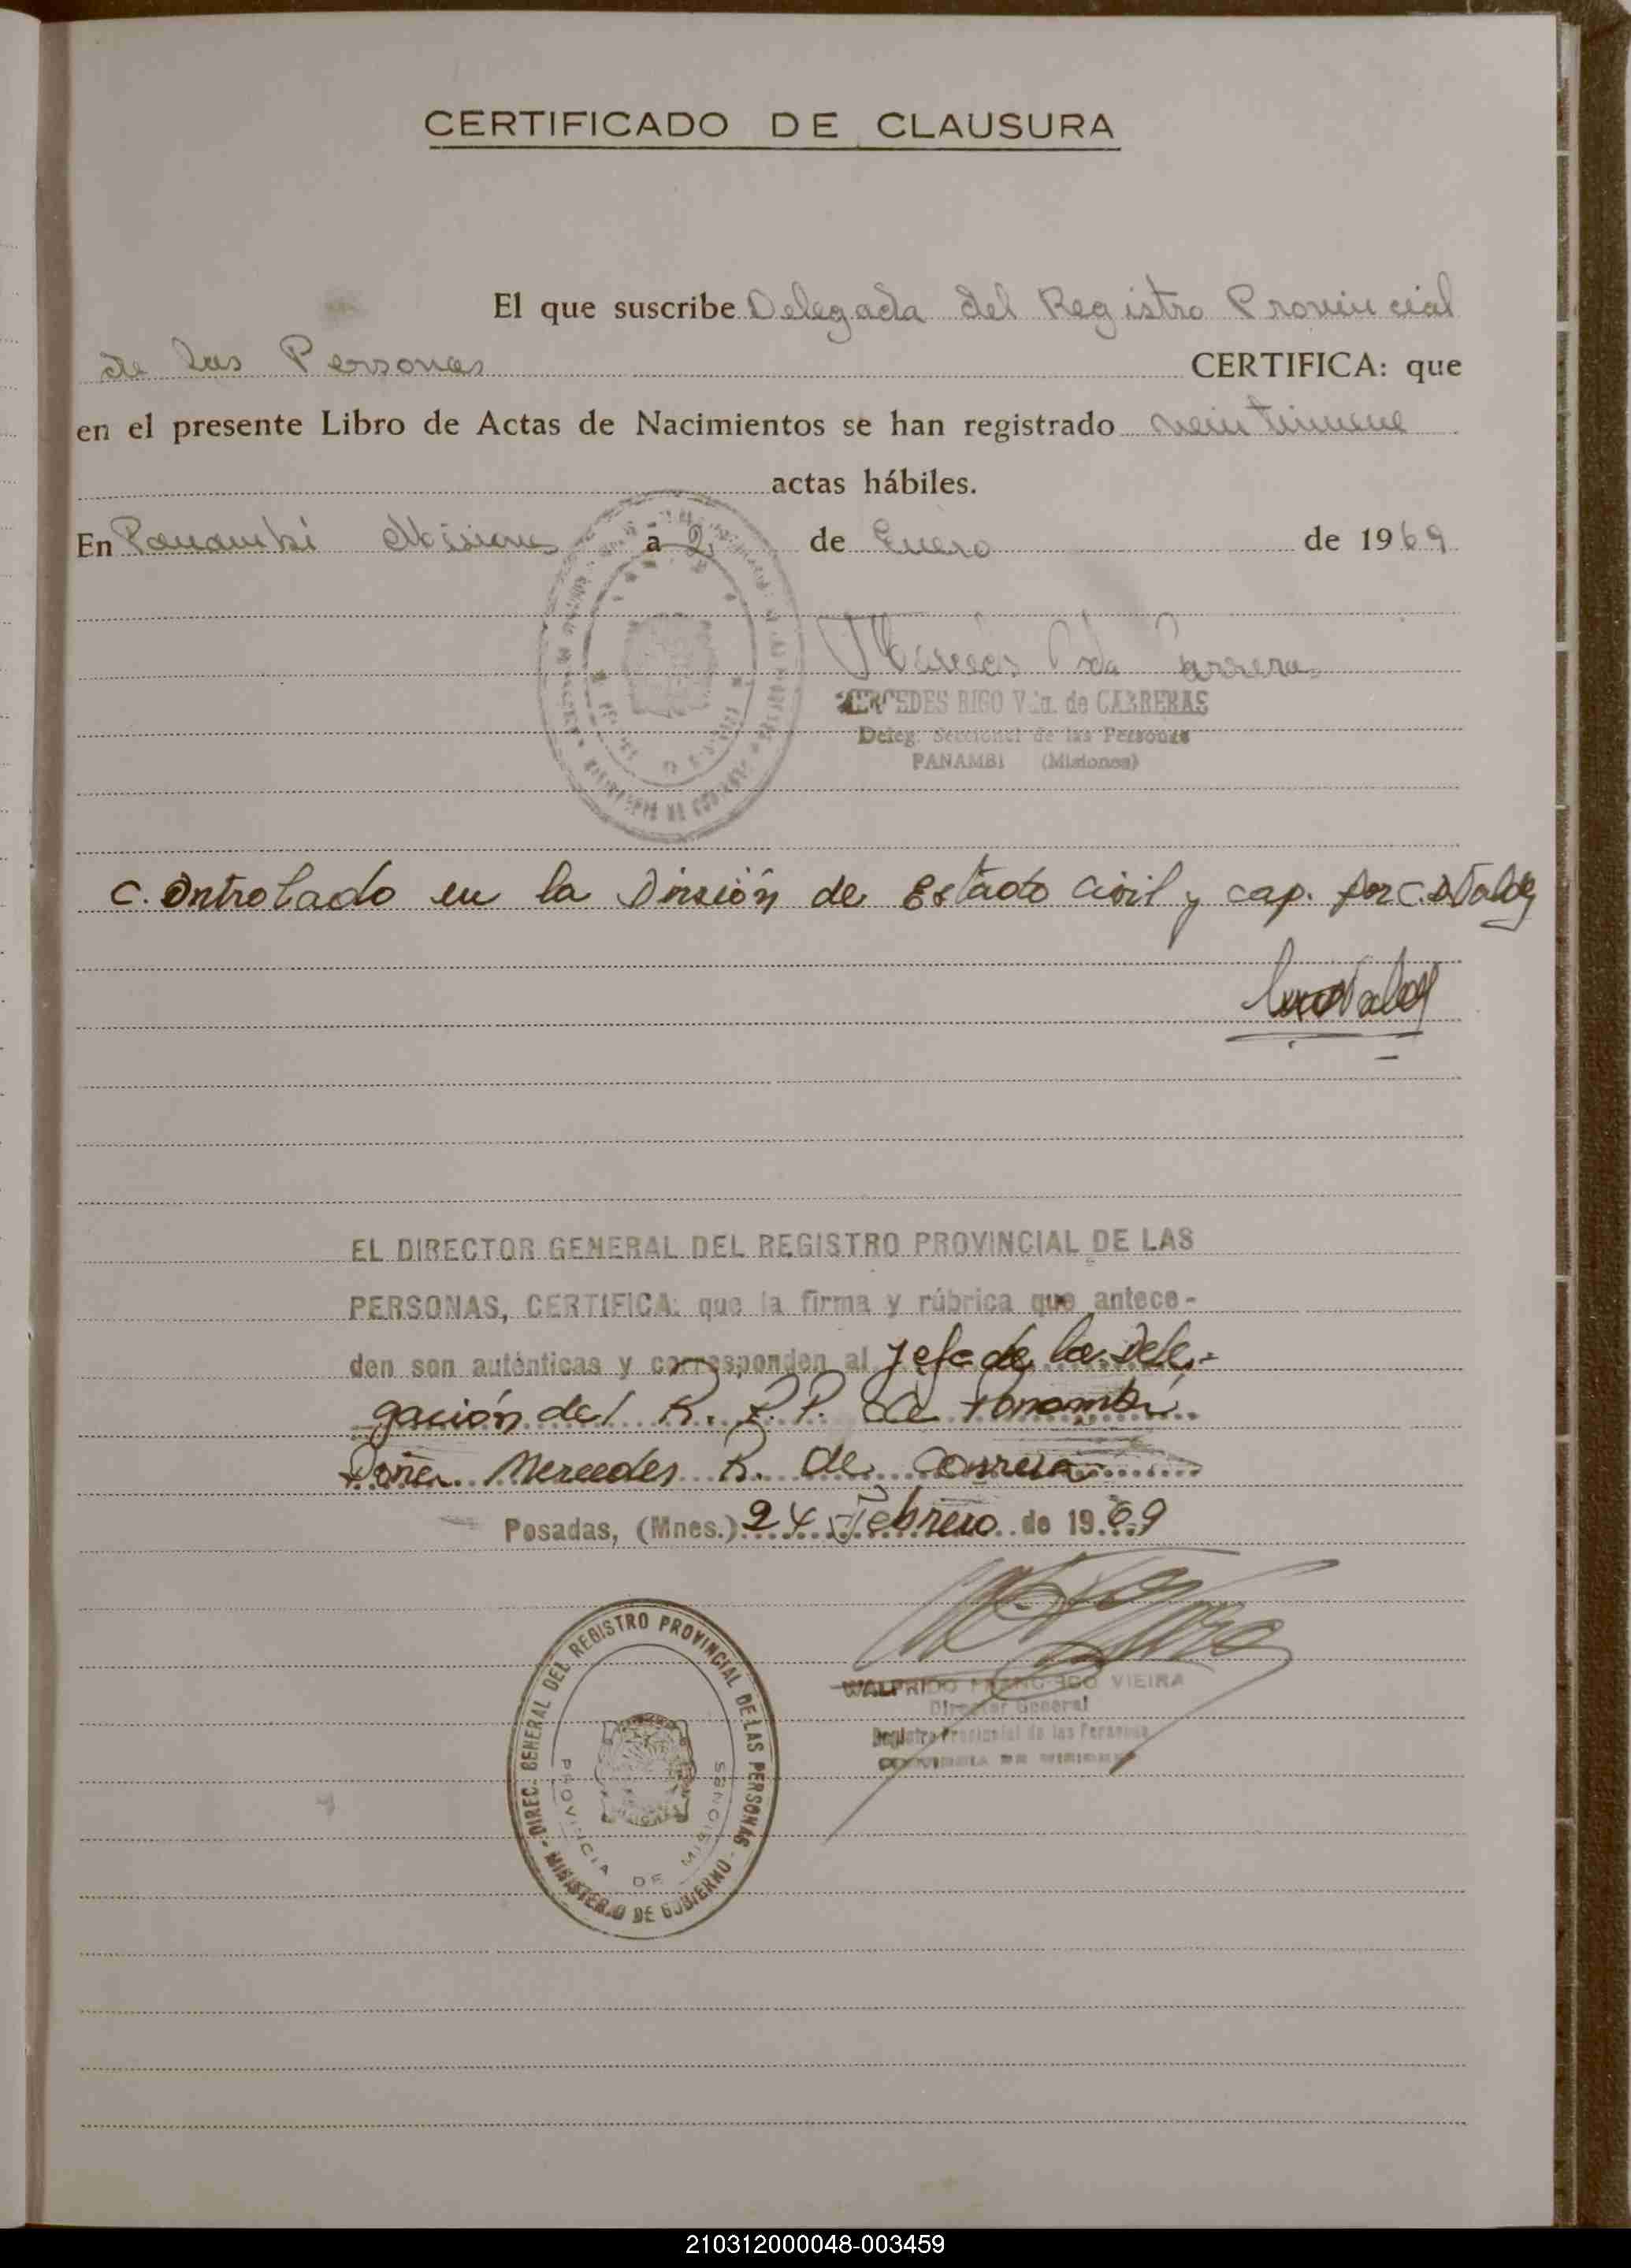 CERTIFICADO DE CLAUSURA
El que suscribe Delegada del Registro Provincial
de las Personas CERTIFICA: que
en el presente Libro de Actas de Nacimientos se han registrado veintinueve
actas hábiles.
En Panambí Misiones a 2 de Enero de 1969
MERCEDES RIGO Vda. de CARRERAS
Deleg. Seccional de las Personas
PANAMBI (Misiones)
C. Ontrolado en la División de Estado Civil y cap. por C.
EL DIRECTOR GENERAL DEL REGISTRO PROVINCIAL DE LAS
PERSONAS, CERTIFICA: que la firma y rúbrica que antece-
den son auténticas y corresponden al Jefe de la Dele-
gación del R. P. P. de Panambí
Doña Mercedes R. de
Posadas, (Mnes.) 24 Febrero de 1969
WALFRIDO FRANCISCO VIEIRA
Director General
Registro Provincial de las Personas
DIREC. GENERAL DEL REGISTRO PROVINCIAL DE LAS PERSONAS
- MINISTERIO DE GOBIERNO -
PROVINCIA DE MISIONES
210312000048-003459